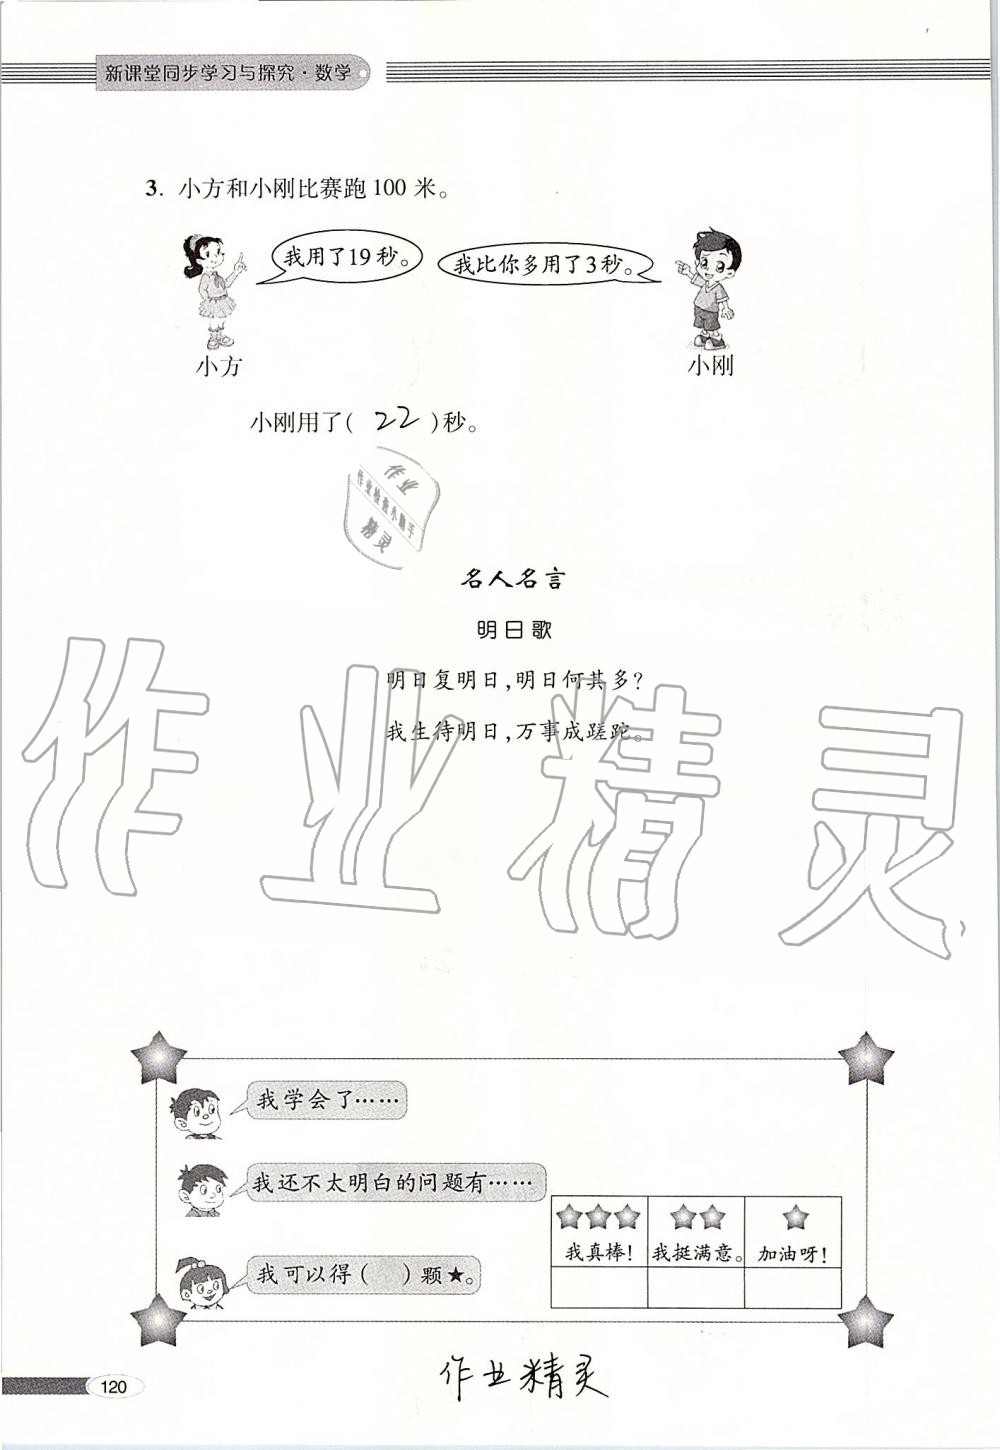 新课堂同步学习与探究·数学
3. 小方和小刚比赛跑100米。
我用了19秒。
我比你多用了3秒。
小方
小刚
小刚用了( 22 )秒。
作业
作业检查小助手
精灵
名人名言
明日歌
明日复明日,明日何其多?
我生待明日,万事成蹉跎。
作业精灵
我学会了……
我还不太明白的问题有……
我真棒! 我挺满意。 加油呀!
我可以得( )颗★。
120
作业精灵